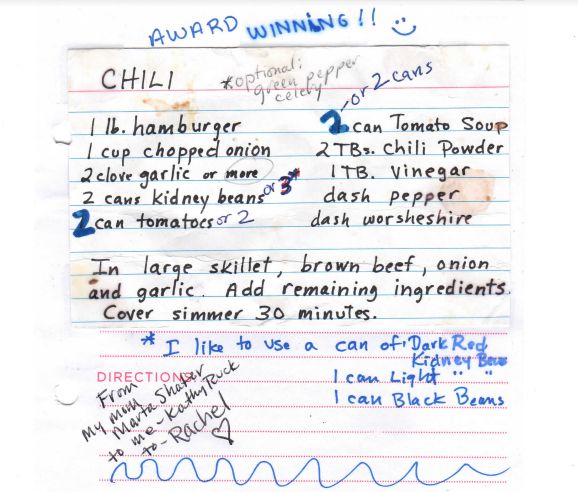 AWARD WINNING!!
CHILI
*optional:
green pepper
celery
1 lb. hamburger
1 cup chopped onion
2 clove garlic or more
2 cans kidney beans or 3*
2 can tomatoes or 2
- or 2 cans
2 can Tomato Soup
2 TBs. Chili Powder
1 TB. Vinegar
dash pepper
dash worsheshire
In large skillet, brown beef, onion
and garlic. Add remaining ingredients.
Cover simmer 30 minutes.
* I like to use a can of: Dark Red
Kidney Beans
1 can Light " "
1 can Black Beans
DIRECTIONS
From
My mom
Marta
to me - Kathy
to - Rachel